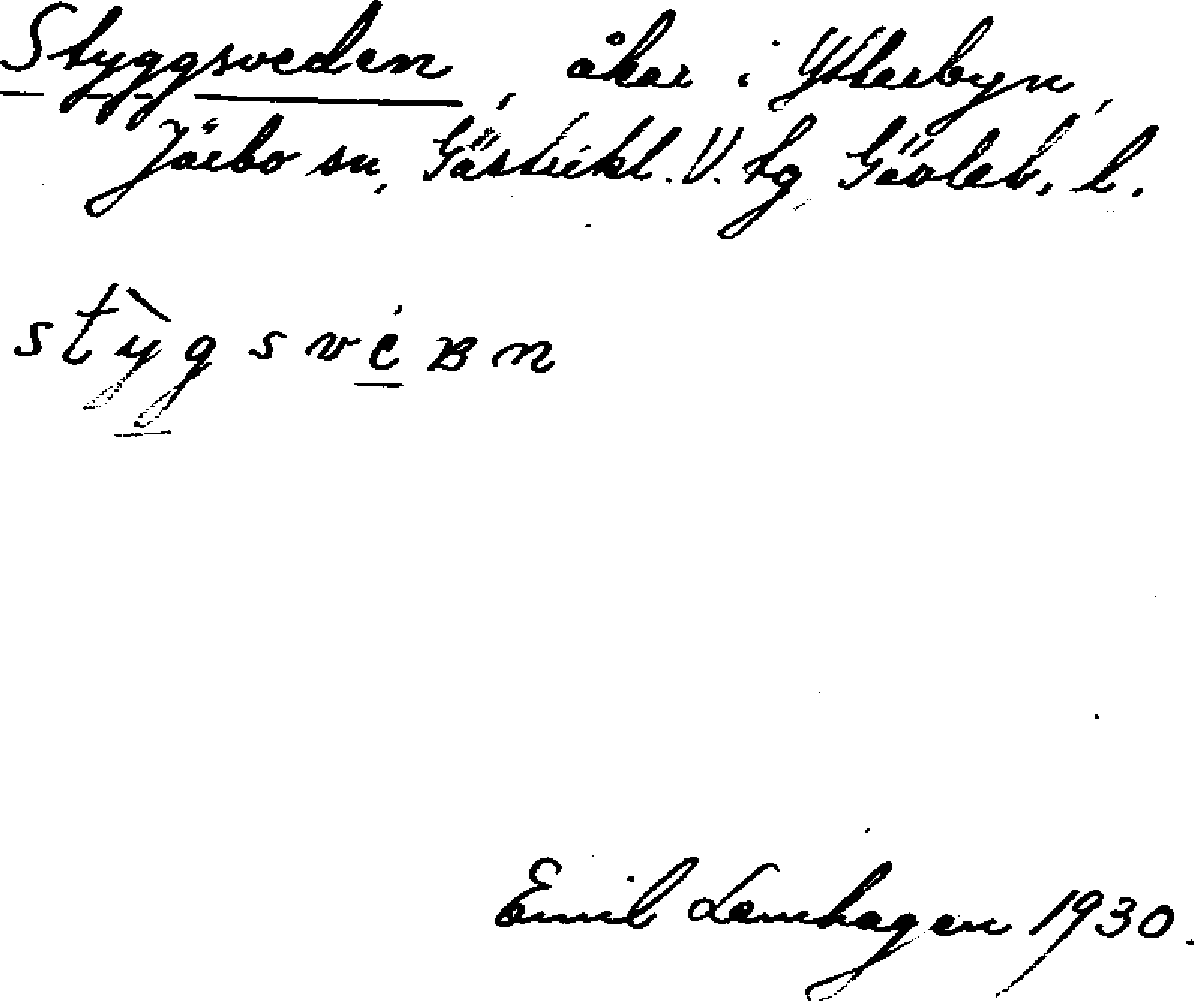 Styggsveden, åker i Ytterbyn,
Järbo sn, Gästrikl. V. tg, Gävleb. l.
stỳgsvéꞵn
Emil Lemhagen 1930.